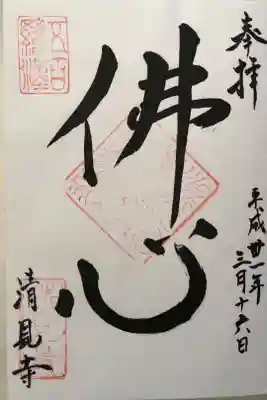 奉拝
平成廿一年
三月十六日
佛心
清見寺